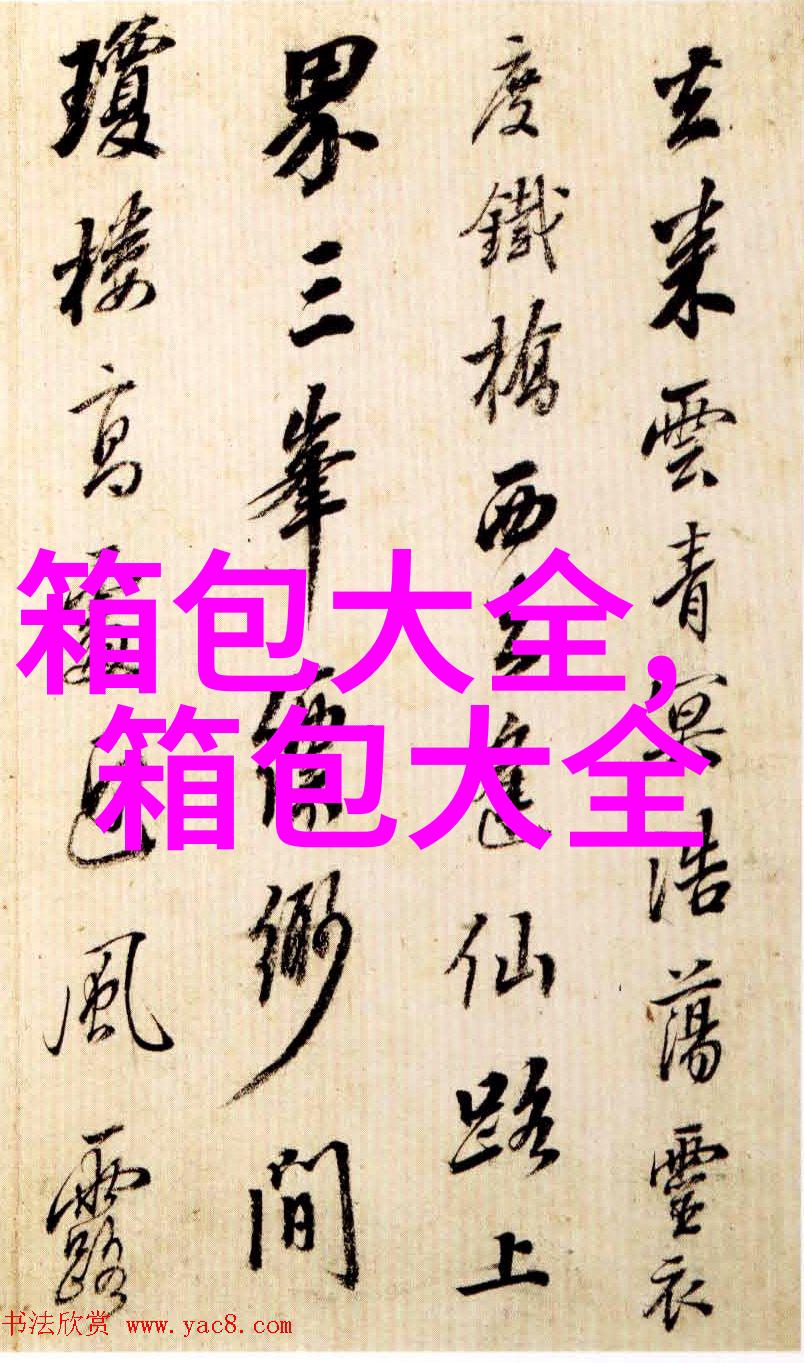 去来雲青冥浩蕩靈衣
度鐵橋西去仙路上
界三峯縹緲間
瓊樓高風露
箱包大全,
箱包大全
书法欣赏 www.yac8.com